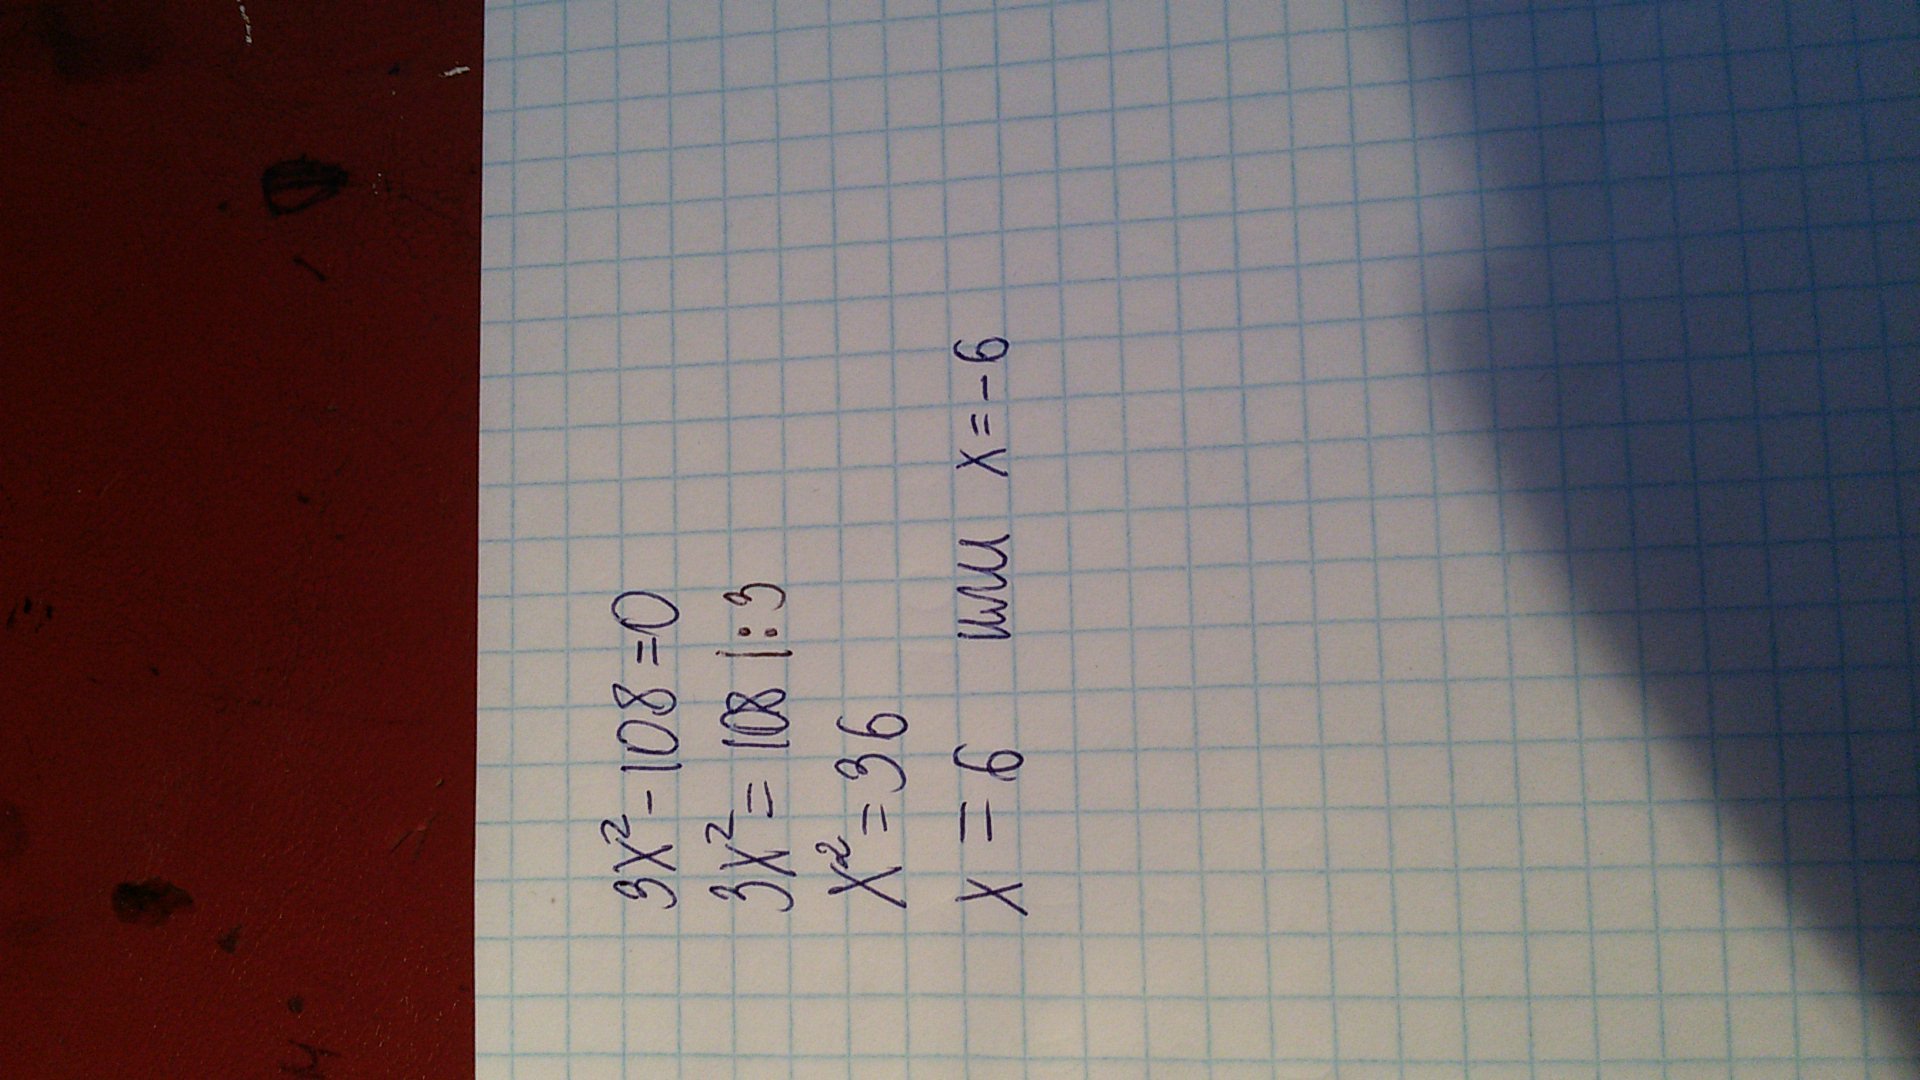 3x²-108=0
3x²=108 |:3
x²=36
x=6 или x=-6